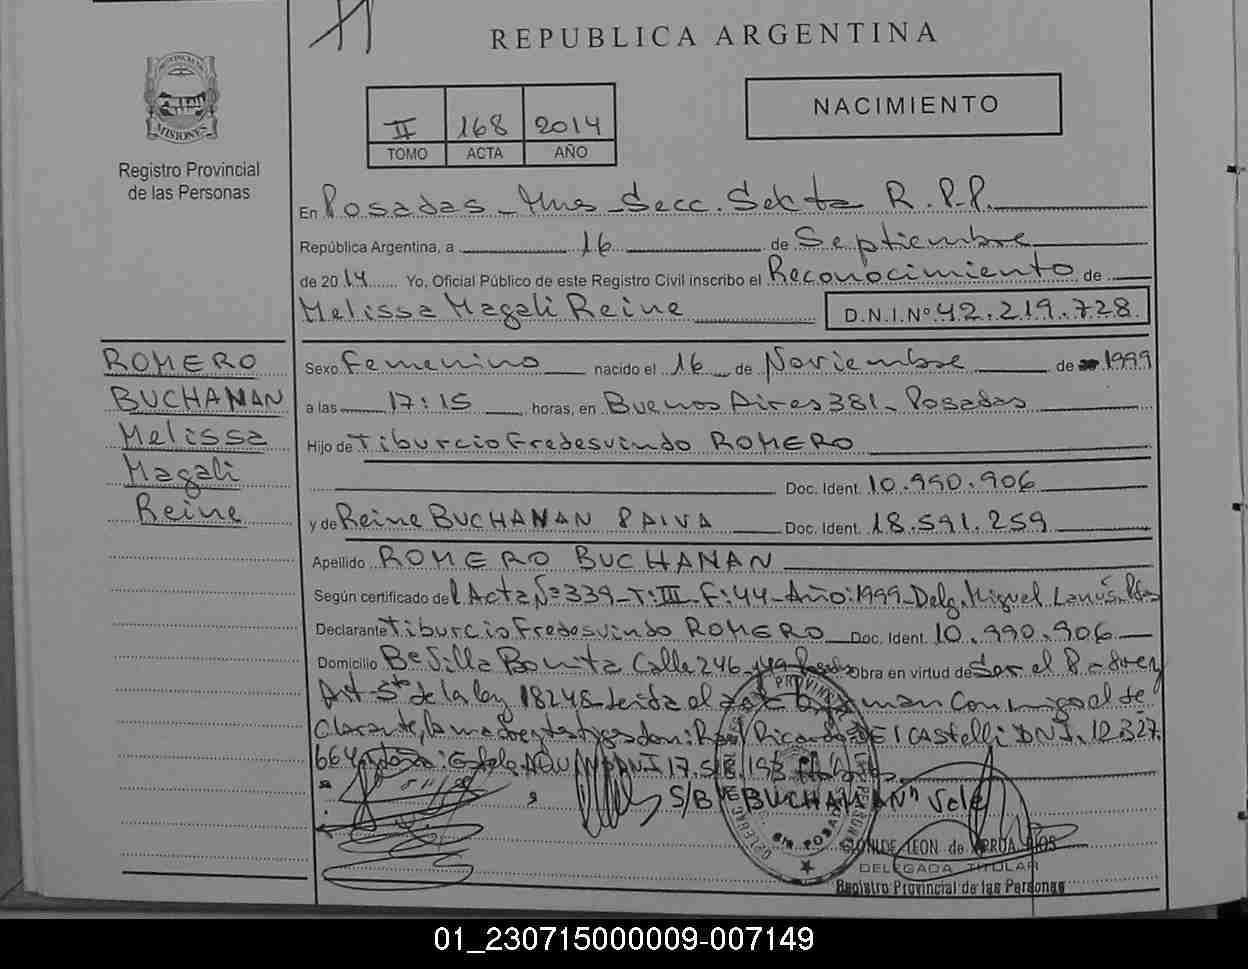 REPUBLICA ARGENTINA
PROVINCIA DE
MISIONES
Registro Provincial
de las Personas
NACIMIENTO
II 168 2014
TOMO ACTA AÑO
En Posadas - Mnes - Secc. Sexta R.P.P.
República Argentina, a 16 de Septiembre
de 2014 Yo, Oficial Público de este Registro Civil inscribo el Reconocimiento de
Melissa Magali Reine D.N.I.Nº 42.219.728
ROMERO
BUCHANAN
Melissa
Magali
Reine
Sexo Femenino nacido el 16 de Noviembre de 1999
a las 17:15 horas, en Buenos Aires 381 - Posadas
Hijo de Tiburcio Fredesvindo ROMERO
Doc. Ident. 10.990.906
y de Reine BUCHANAN PAIVA Doc. Ident. 18.591.259
Apellido ROMERO BUCHANAN
Según certificado del Acta Nº 339 - T: III - F: 44 - Año: 1999 - Delg. Miguel Lanús - Pdas
Declarante Tiburcio Fredesvindo ROMERO Doc. Ident. 10.990.906
Domicilio Bº Villa Bonita Calle 246 Obra en virtud de Ser el Padre y
Art 5to de la ley 18248 - Leida el acta firman Conmigo el de
Clarante, la madre y testigos don: Raúl Ricardo DEL CASTELLI DNI. 12.327.
664
S/B "BUCHANAN" Vale
LEON de
DELEGADA TITULAR
Registro Provincial de las Personas
01_230715000009-007149